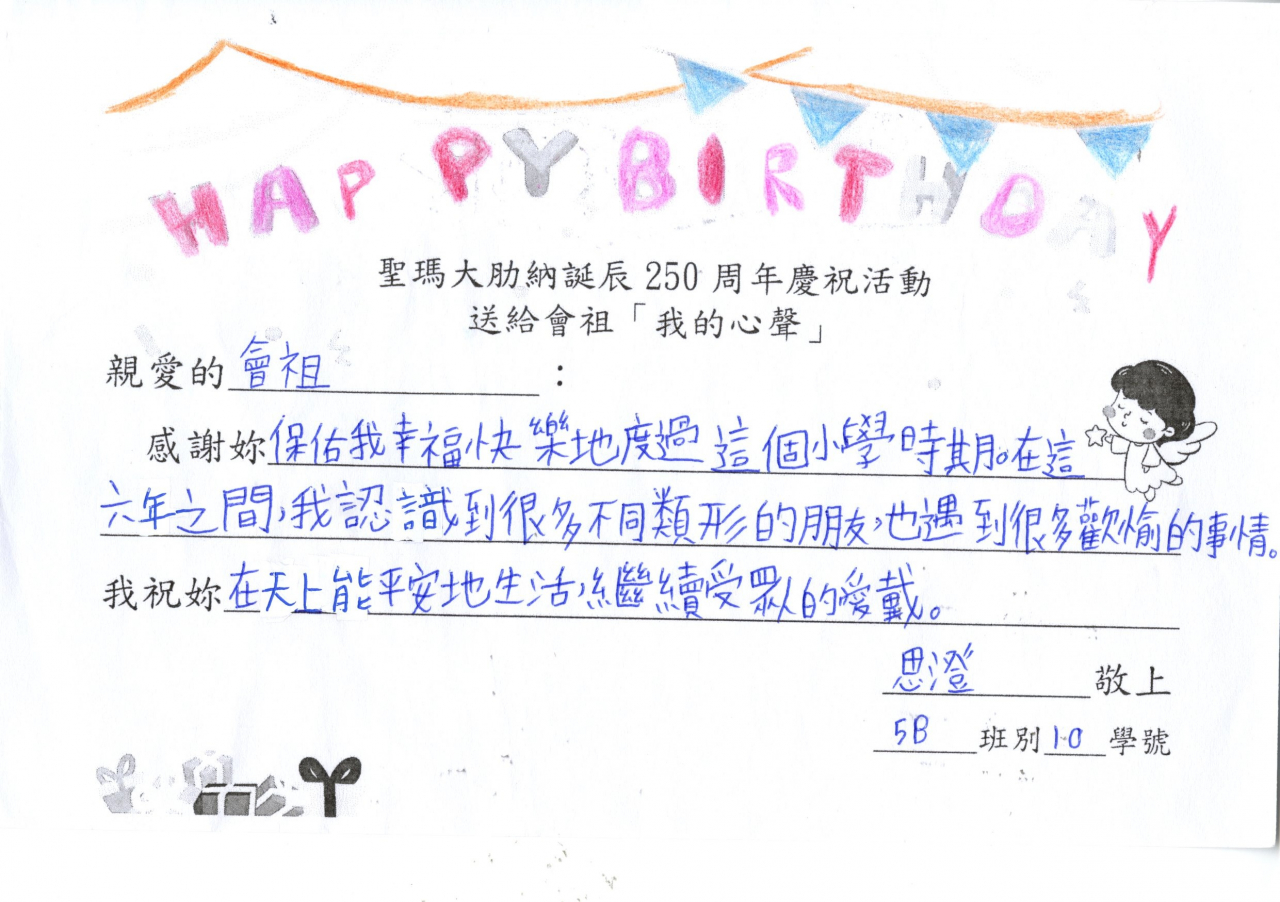 HAPPY BIRTHDAY
聖瑪大肋納誕辰 250 周年慶祝活動
送給會祖「我的心聲」
親愛的 會祖 :
感謝妳保佑我幸福快樂地度過這個小學時期。在這
六年之間,我認識到很多不同類形的朋友,也遇到很多歡愉的事情。
我祝妳在天上能平安地生活,繼續受眾人的愛戴。
思澄 敬上
5B 班別 10 學號